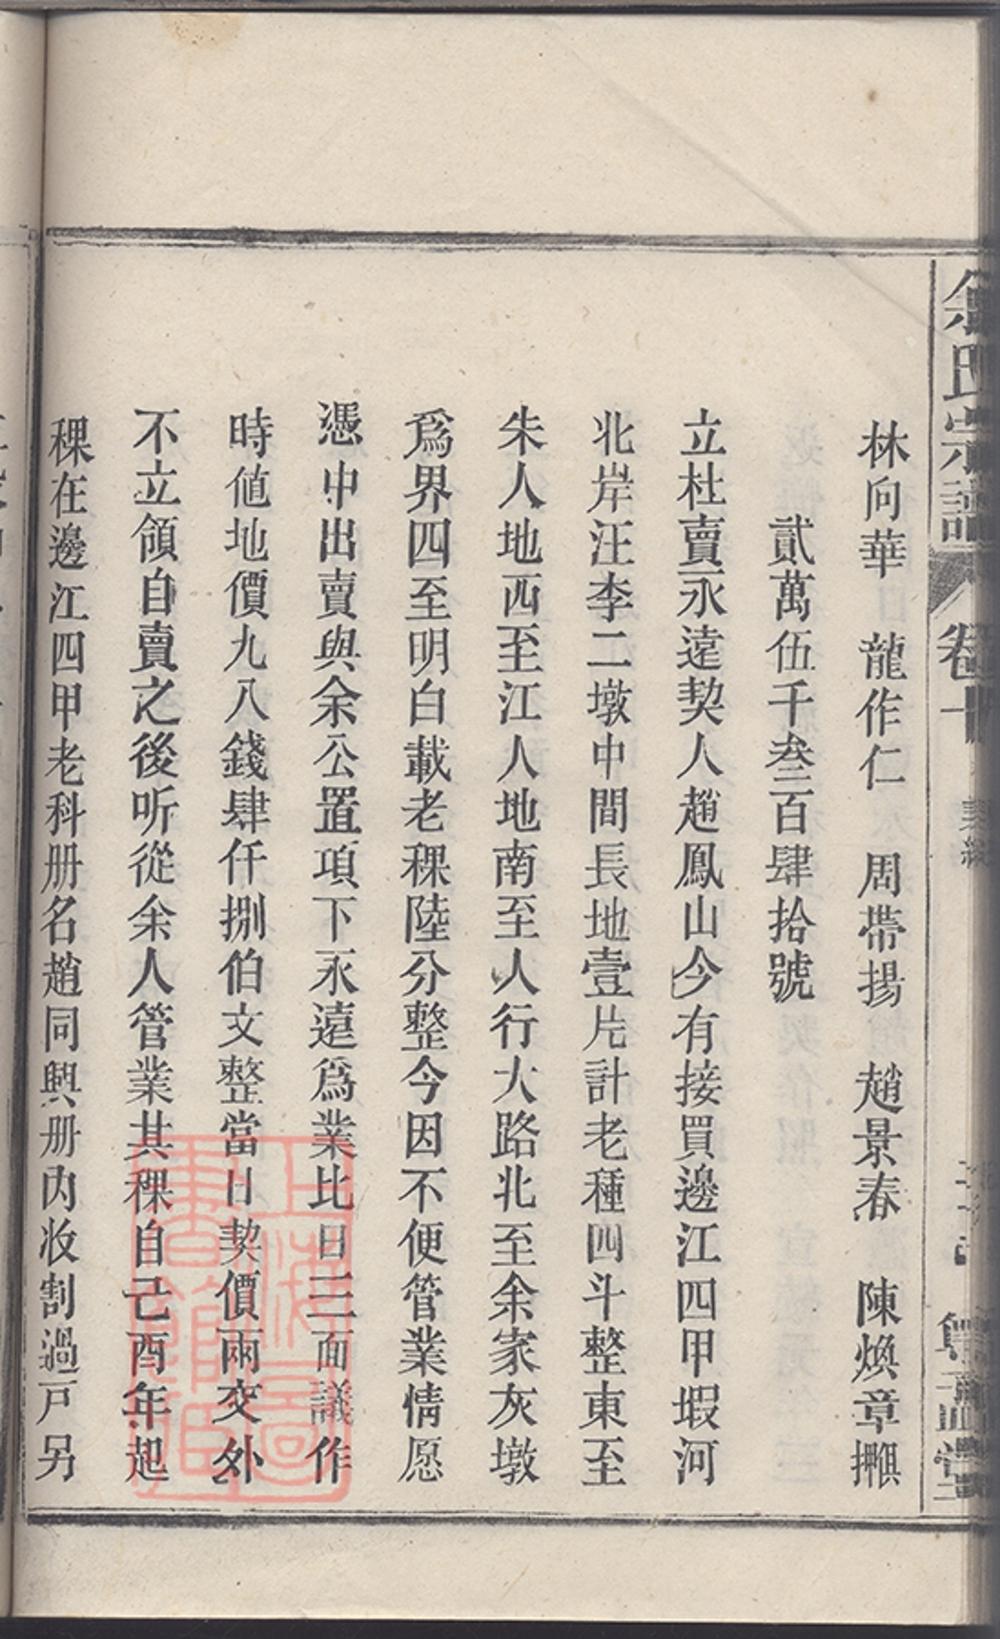 余氏宗譜
卷十
林向華　龍作仁　周帶揚　趙景春　陳煥章撰
貳萬伍千叁百肆拾號
立杜賣永遠契人趙鳳山今有接買邊江四甲塅河
北岸汪李二墩中間長地壹片計老種四斗整東至
朱人地西至江人地南至人行大路北至余家灰墩
爲界四至明白載老稞陸分整今因不便管業情愿
憑中出賣與余公置項下永遠爲業比日三面議作
時値地價九八錢肆仟捌伯文整當日契價兩交外
不立領自賣之後听從余人管業其稞自己酉年起
稞在邊江四甲老科册名趙同興册内收割過戸另
上海圖書館藏